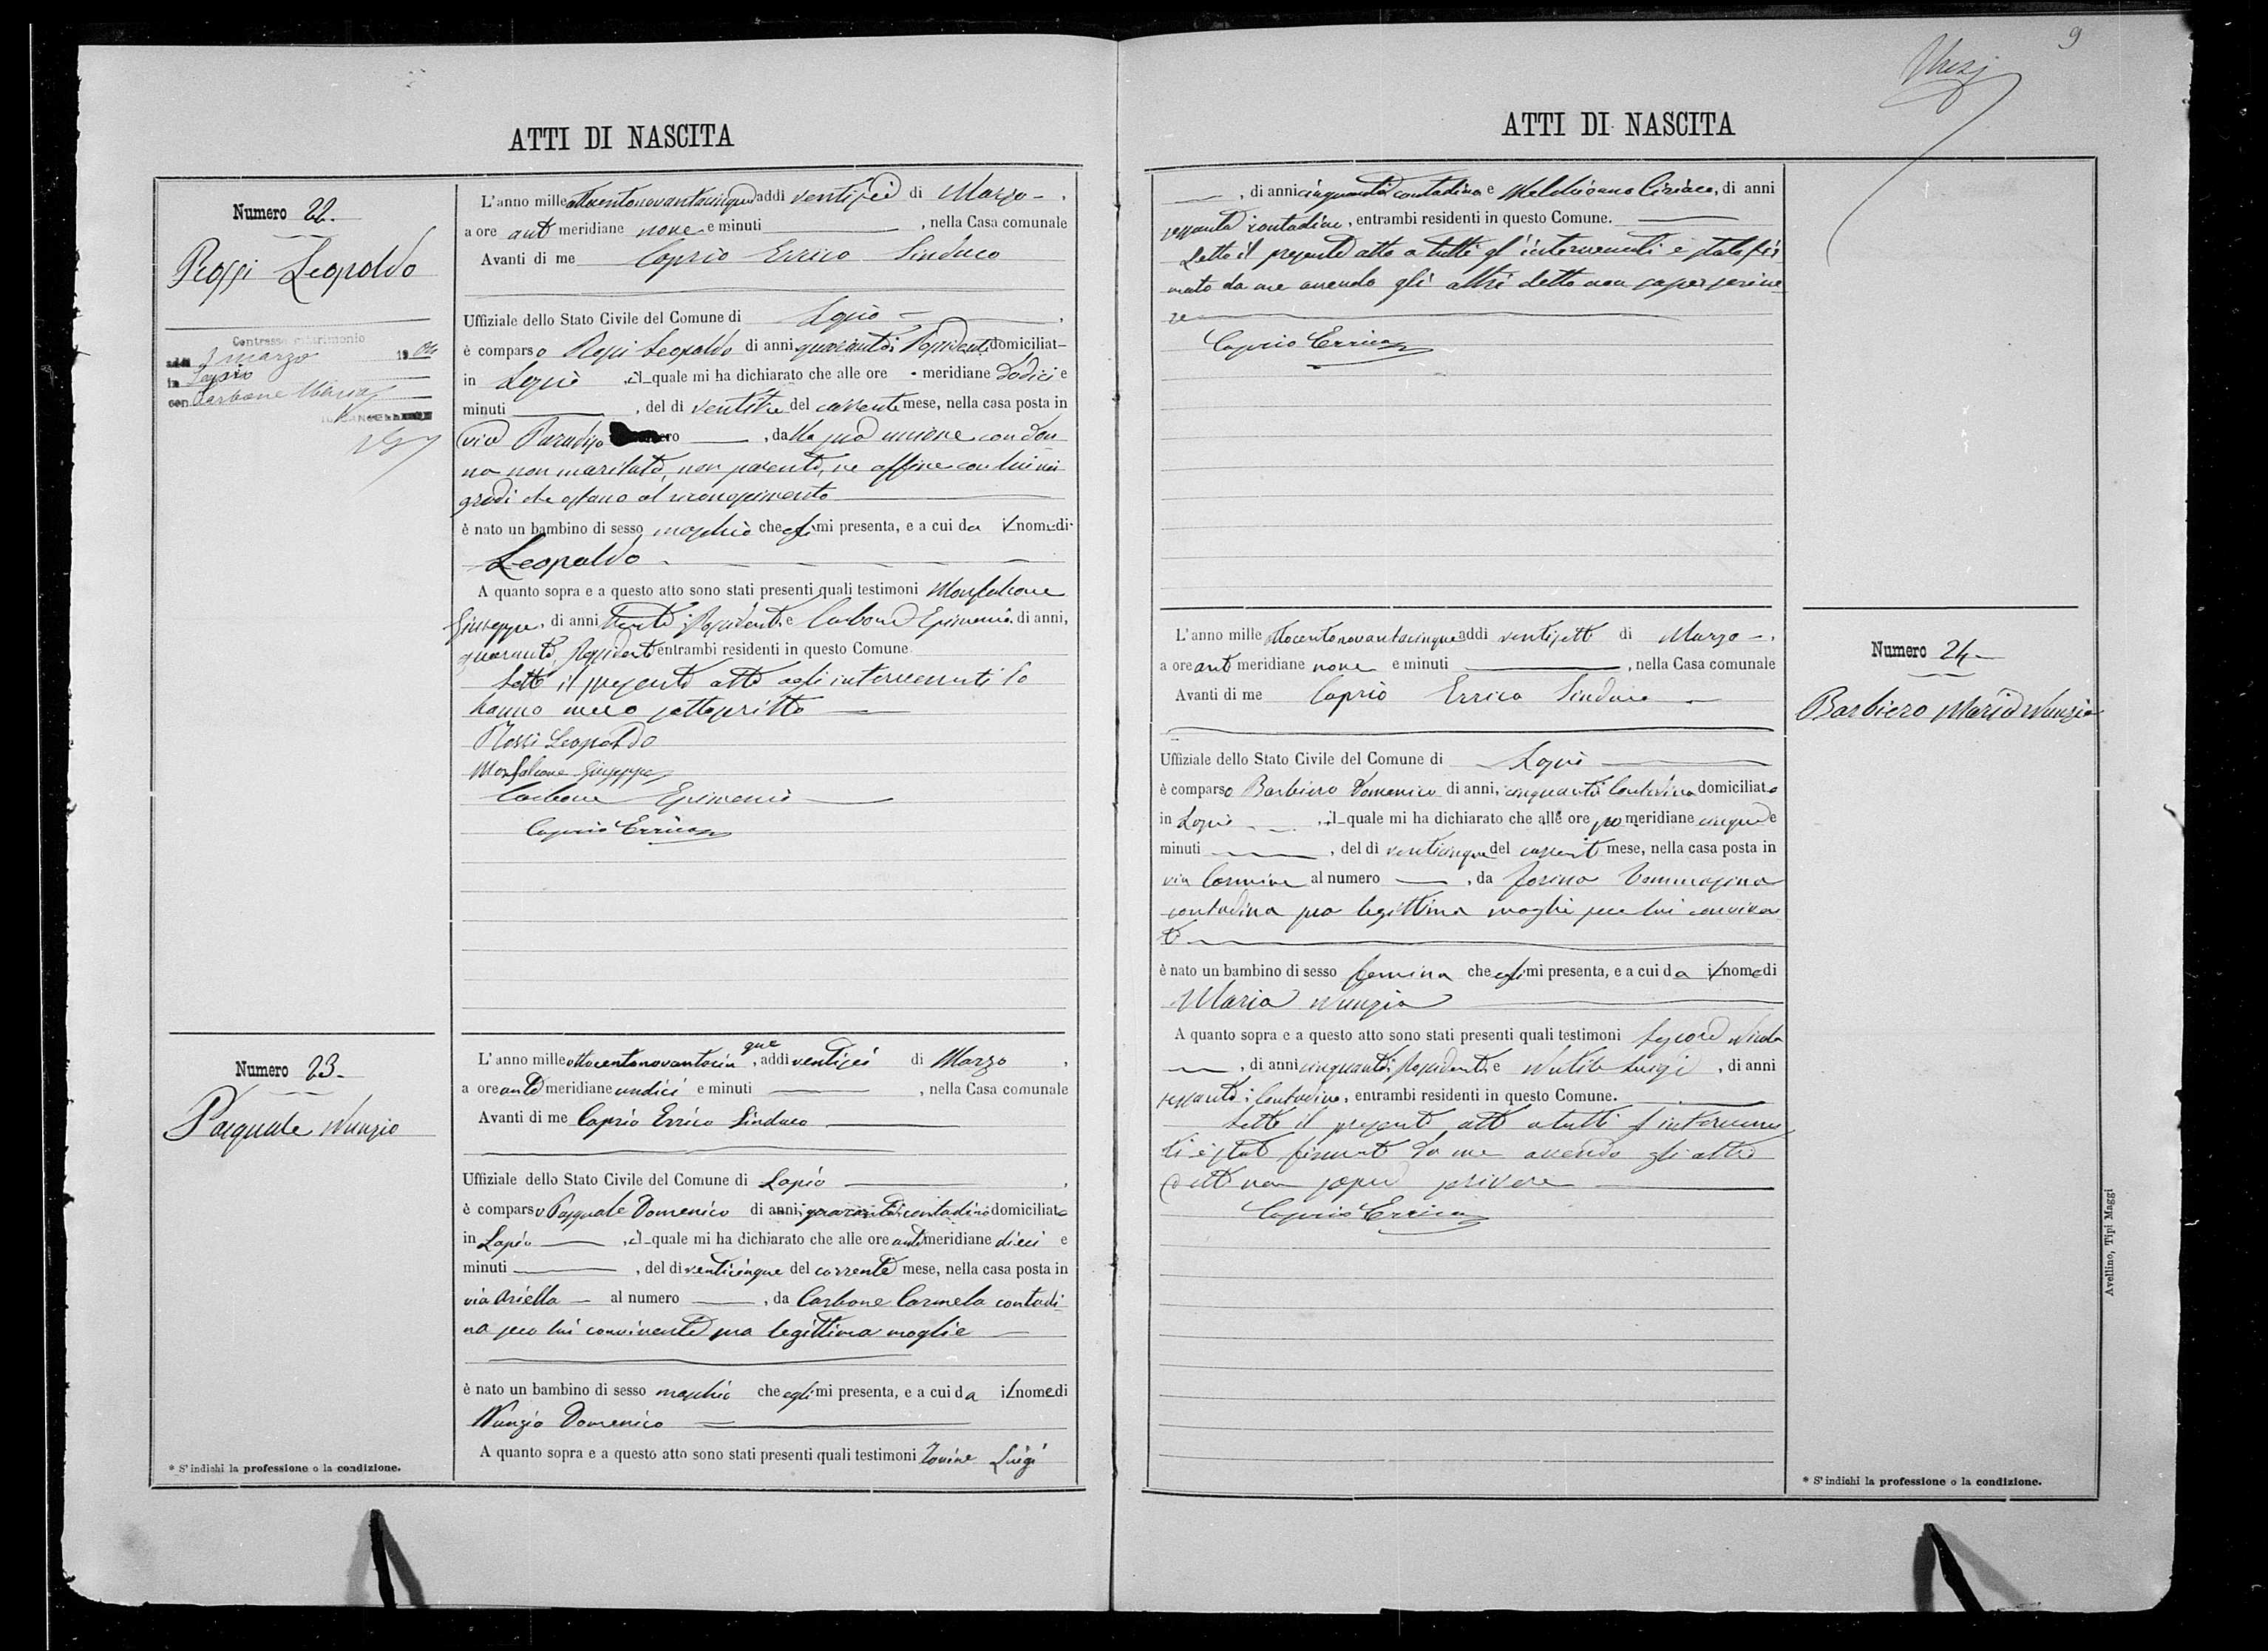 9
ATTI DI NASCITA
Numero 22.
Rossi Leopoldo
Contrasse matrimonio
addì 3 marzo 19
in Lapio
con Carbone Maria
L'anno milleottocentonovantacinque addì ventisei di Marzo
a ore ant meridiane nove e minuti , nella Casa comunale
Avanti di me Caprio Errico Sindaco
Uffiziale dello Stato Civile del Comune di Lapio
è comparso Rossi Leopoldo di anni quaranta Possidente domiciliat
in Lapio , il quale mi ha dichiarato che alle ore meridiane dodici e
minuti , del dì ventitre del corrente mese, nella casa posta in
via Paradiso , dalla sua unione con don
na non maritata, non parente, ne affine con lui nei
gradi che ostano al riconoscimento
è nato un bambino di sesso maschio che egli mi presenta, e a cui da il nome di
Leopoldo
A quanto sopra e a questo atto sono stati presenti quali testimoni Monfalcone
Giuseppe, di anni trenta, Possidente e Carbone Epimenio di anni,
quaranta, Possidente entrambi residenti in questo Comune
Letto il presente atto agli intervenuti lo
hanno meco sottoscritto
Rossi Leopoldo
Monfalcone Giuseppe
Carbone Epimenio
Caprio Errico
Numero 23.
Pasquale Nunzio
L'anno milleottocentonovantacinque, addì ventisei di Marzo ,
a ore ante meridiane undici e minuti , nella Casa comunale
Avanti di me Caprio Errico Sindaco
Uffiziale dello Stato Civile del Comune di Lapio ,
è comparso Pasquale Domenico di anni quaranta contadino domiciliato
in Lapio , il quale mi ha dichiarato che alle ore ante meridiane dieci e
minuti , del dì venticinque del corrente mese, nella casa posta in
via Ariella al numero , da Carbone Carmela contadi
na seco lui convivente sua legittima moglie
è nato un bambino di sesso maschio che egli mi presenta, e a cui da il nome di
Nunzio Domenico
A quanto sopra e a questo atto sono stati presenti quali testimoni Luigi
* S'indichi la professione o la condizione.
ATTI DI NASCITA
, di anni cinquanta contadino e Melchionno Ciriaco, di anni
sessanta contadino, entrambi residenti in questo Comune.
Letto il presente atto a tutti gl'intervenuti è stato fir
mato da me avendo gli altri detto non saper scrive
re
Caprio Errico
Numero 24
Barbiero Maria Nunzia
L'anno mille ottocentonovantacinque addì ventisette di Marzo
a ore ant meridiane nove e minuti , nella Casa comunale
Avanti di me Caprio Errico Sindaco
Uffiziale dello Stato Civile del Comune di Lapio
è comparso Barbiero Domenico di anni, cinquanta Contadino domiciliato
in Lapio , il quale mi ha dichiarato che alle ore po meridiane cinque e
minuti , del dì venticinque del corrente mese, nella casa posta in
via Carmine al numero , da Tommasina
contadina sua legittima moglie seco lui conviven
te
è nato un bambino di sesso femina che egli mi presenta, e a cui da il nome di
Maria Nunzia
A quanto sopra e a questo atto sono stati presenti quali testimoni Nicola
, di anni cinquanta, Possidente e Luigi , di anni
sessanta, Contadino, entrambi residenti in questo Comune.
Letto il presente atto a tutti gl'intervenu
ti è stato firmato da me avendo gli altri
detto non sapere scrivere
Caprio Errico
* S'indichi la professione o la condizione.
Avellino, Tipi Maggi